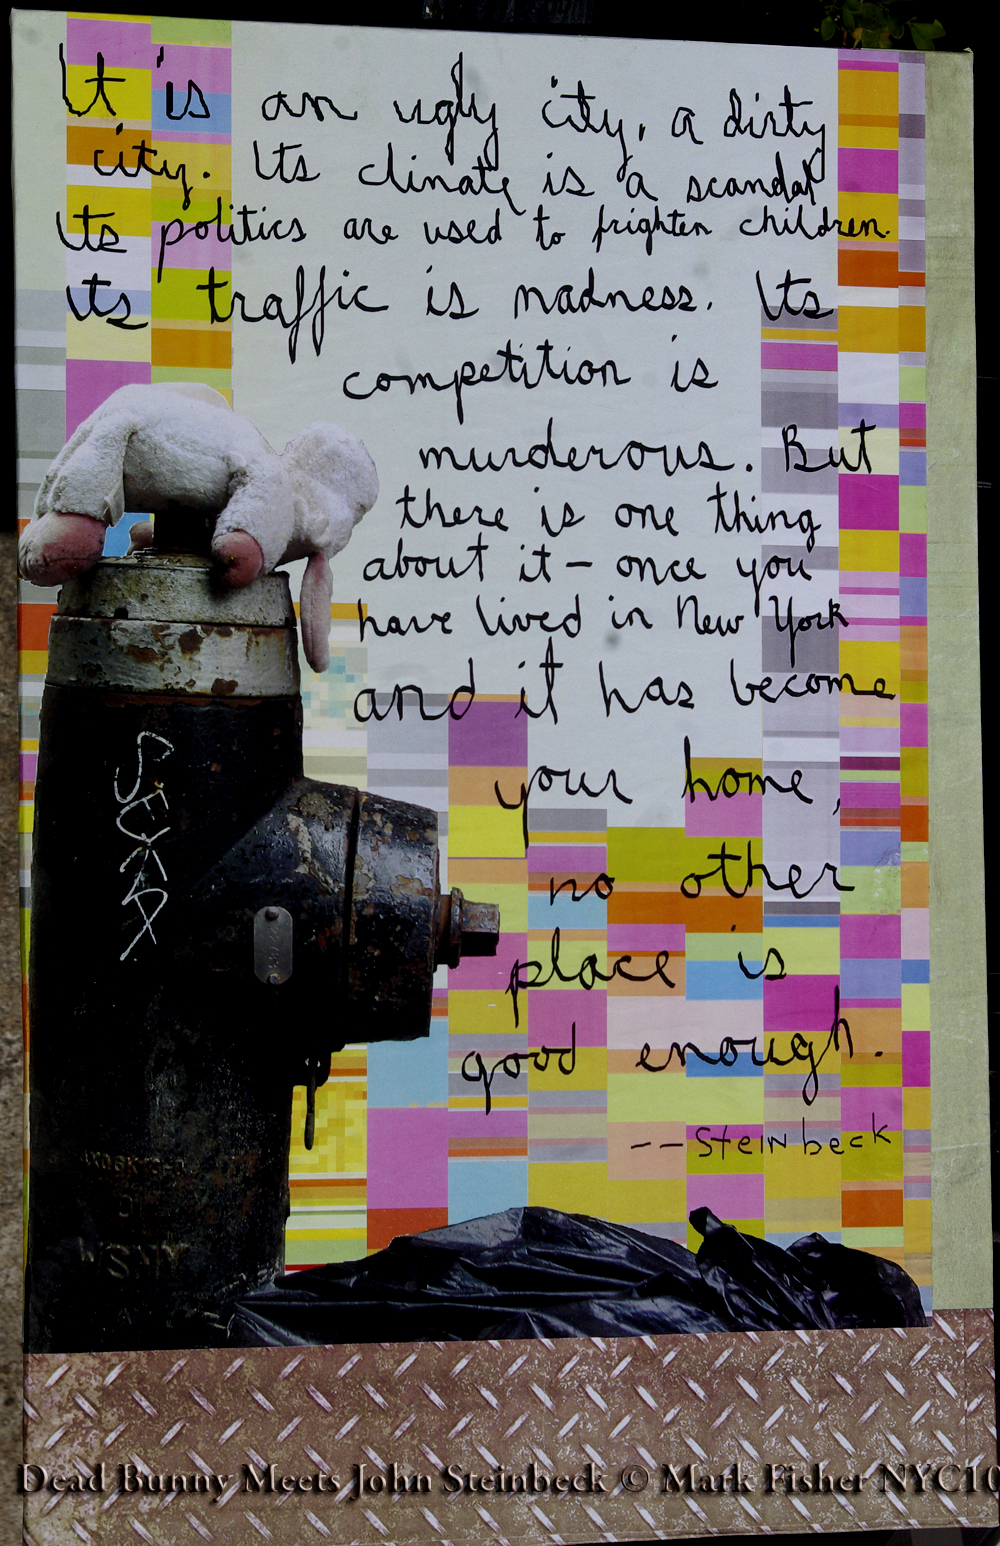 It is an ugly city, a dirty
city. Its climate is a scandal
Its politics are used to frighten children.
Its traffic is madness. Its
competition is
murderous. But
there is one thing
about it – once you
have lived in New York
and it has become
your home,
no other
place is
good enough.
-- Steinbeck
WSNY
Dead Bunny Meets John Steinbeck © Mark Fisher NYC10